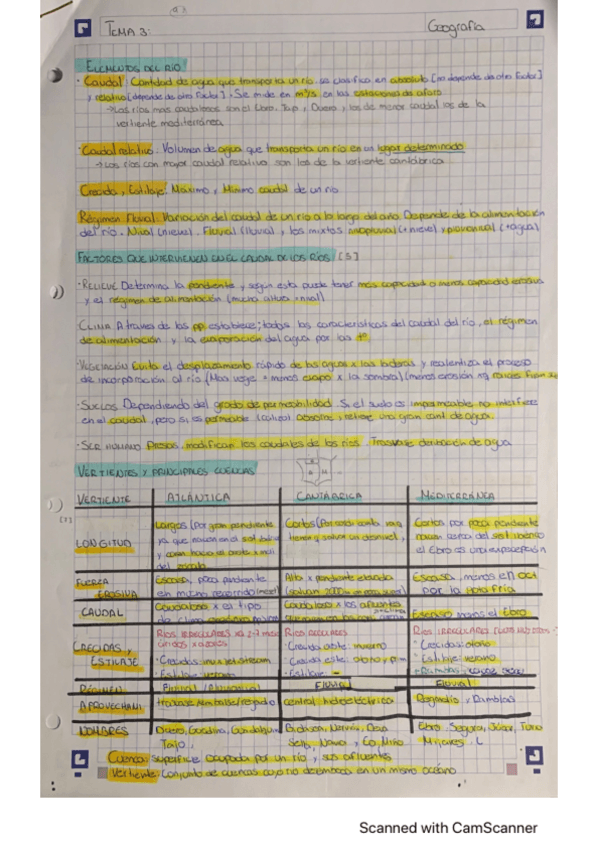 TEMA 3:
Geografía
ELEMENTOS DEL RÍO
· Caudal: Cantidad de agua que transporta un río. se clasifica en absoluto [no depende de otro factor]
y relativo [depende de otro factor]. Se mide en m³/s en las estaciones de aforo
→ Los ríos mas caudalosos son el Ebro, Tajo, Duero y los de menor caudal los de la
vertiente mediterránea
· Caudal relativo: Volumen de agua que transporta un río en un lugar determinado
→ Los ríos con mayor caudal relativo son los de la vertiente cantábrica
Crecida y Estiaje: Máximo y Mínimo caudal de un río
Régimen Fluvial: Variación del caudal de un río a lo largo del año. Depende de la alimentación
del río. Nival (nieve), Fluvial (lluvia) y los mixtos nivopluvial (+nieve) y pluvionival (+agua)
FACTORES QUE INTERVIENEN EN EL CAUDAL DE LOS RÍOS [5]
· RELIEVE Determina la pendiente y según esta puede tener más capacidad o menos capacidad erosiva
y el régimen de alimentación (mucha altura = nival)
CLIMA A traves de las pp establece: todas las características del caudal del río, el régimen
de alimentación y la evaporación del agua por las tº
· VEGETACIÓN Evita el desplazamiento rápido de las aguas x las laderas y realentiza el proceso
de incorporación al río (Mas vege = menos evapo x la sombra) (menos erosión xq raíces
· SUELOS Dependiendo del grado de permeabilidad. Si el suelo es impermeable no interfiere
en el caudal, pero si es permeable (caliza) absorbe y retiene una gran cant de agua.
· SER HUMANO Presas, modifican los caudales de los ríos. Trasvase derivación de agua
VERTIENTES Y PRINCIPALES CUENCAS
VERTIENTE ATLÁNTICA CANTÁBRICA MEDITERRÁNEA
LONGITUD
Largos (por gran pendiente
ya que nacen en el
Cortos (Por
Cortos por poca pendiente
nacen cerca del
el Ebro es una excepción
FUERZA EROSIVA
Escasa, poca pendiente
Alta x pendiente elevada
Escasa, menos en oct
por la Gota Fría
CAUDAL
Caudaloso x el tipo
Caudaloso x los afluentes
Escasao menos el Ebro
CRECIDAS Y
ESTIAJE
RÍOS IRREGULARES
RÍOS REGULARES
RÍOS IRREGULARES
· Crecidas: inv x jetstream
· Estiaje: verano
· Crecida abte: invierno
· Estiaje: –
· Crecidas: otoño
· Estiaje: verano
RÉGIMEN Fluvial Fluvial
APROVECHAMI central hidroeléctrica Regadío y Ramblas
NOMBRES
Duero, Guadiana, Guadalquivir
Tajo,
Bidasoa, Nervión, Deva
Sella, Navia y Eo, Miño
Ebro, Segura, Júcar, Turia
Mijares,
Cuenca: superficie ocupada por un río y sus afluentes
Vertiente: Conjunto de cuencas cuyo río desemboca en un mismo océano
Scanned with CamScanner